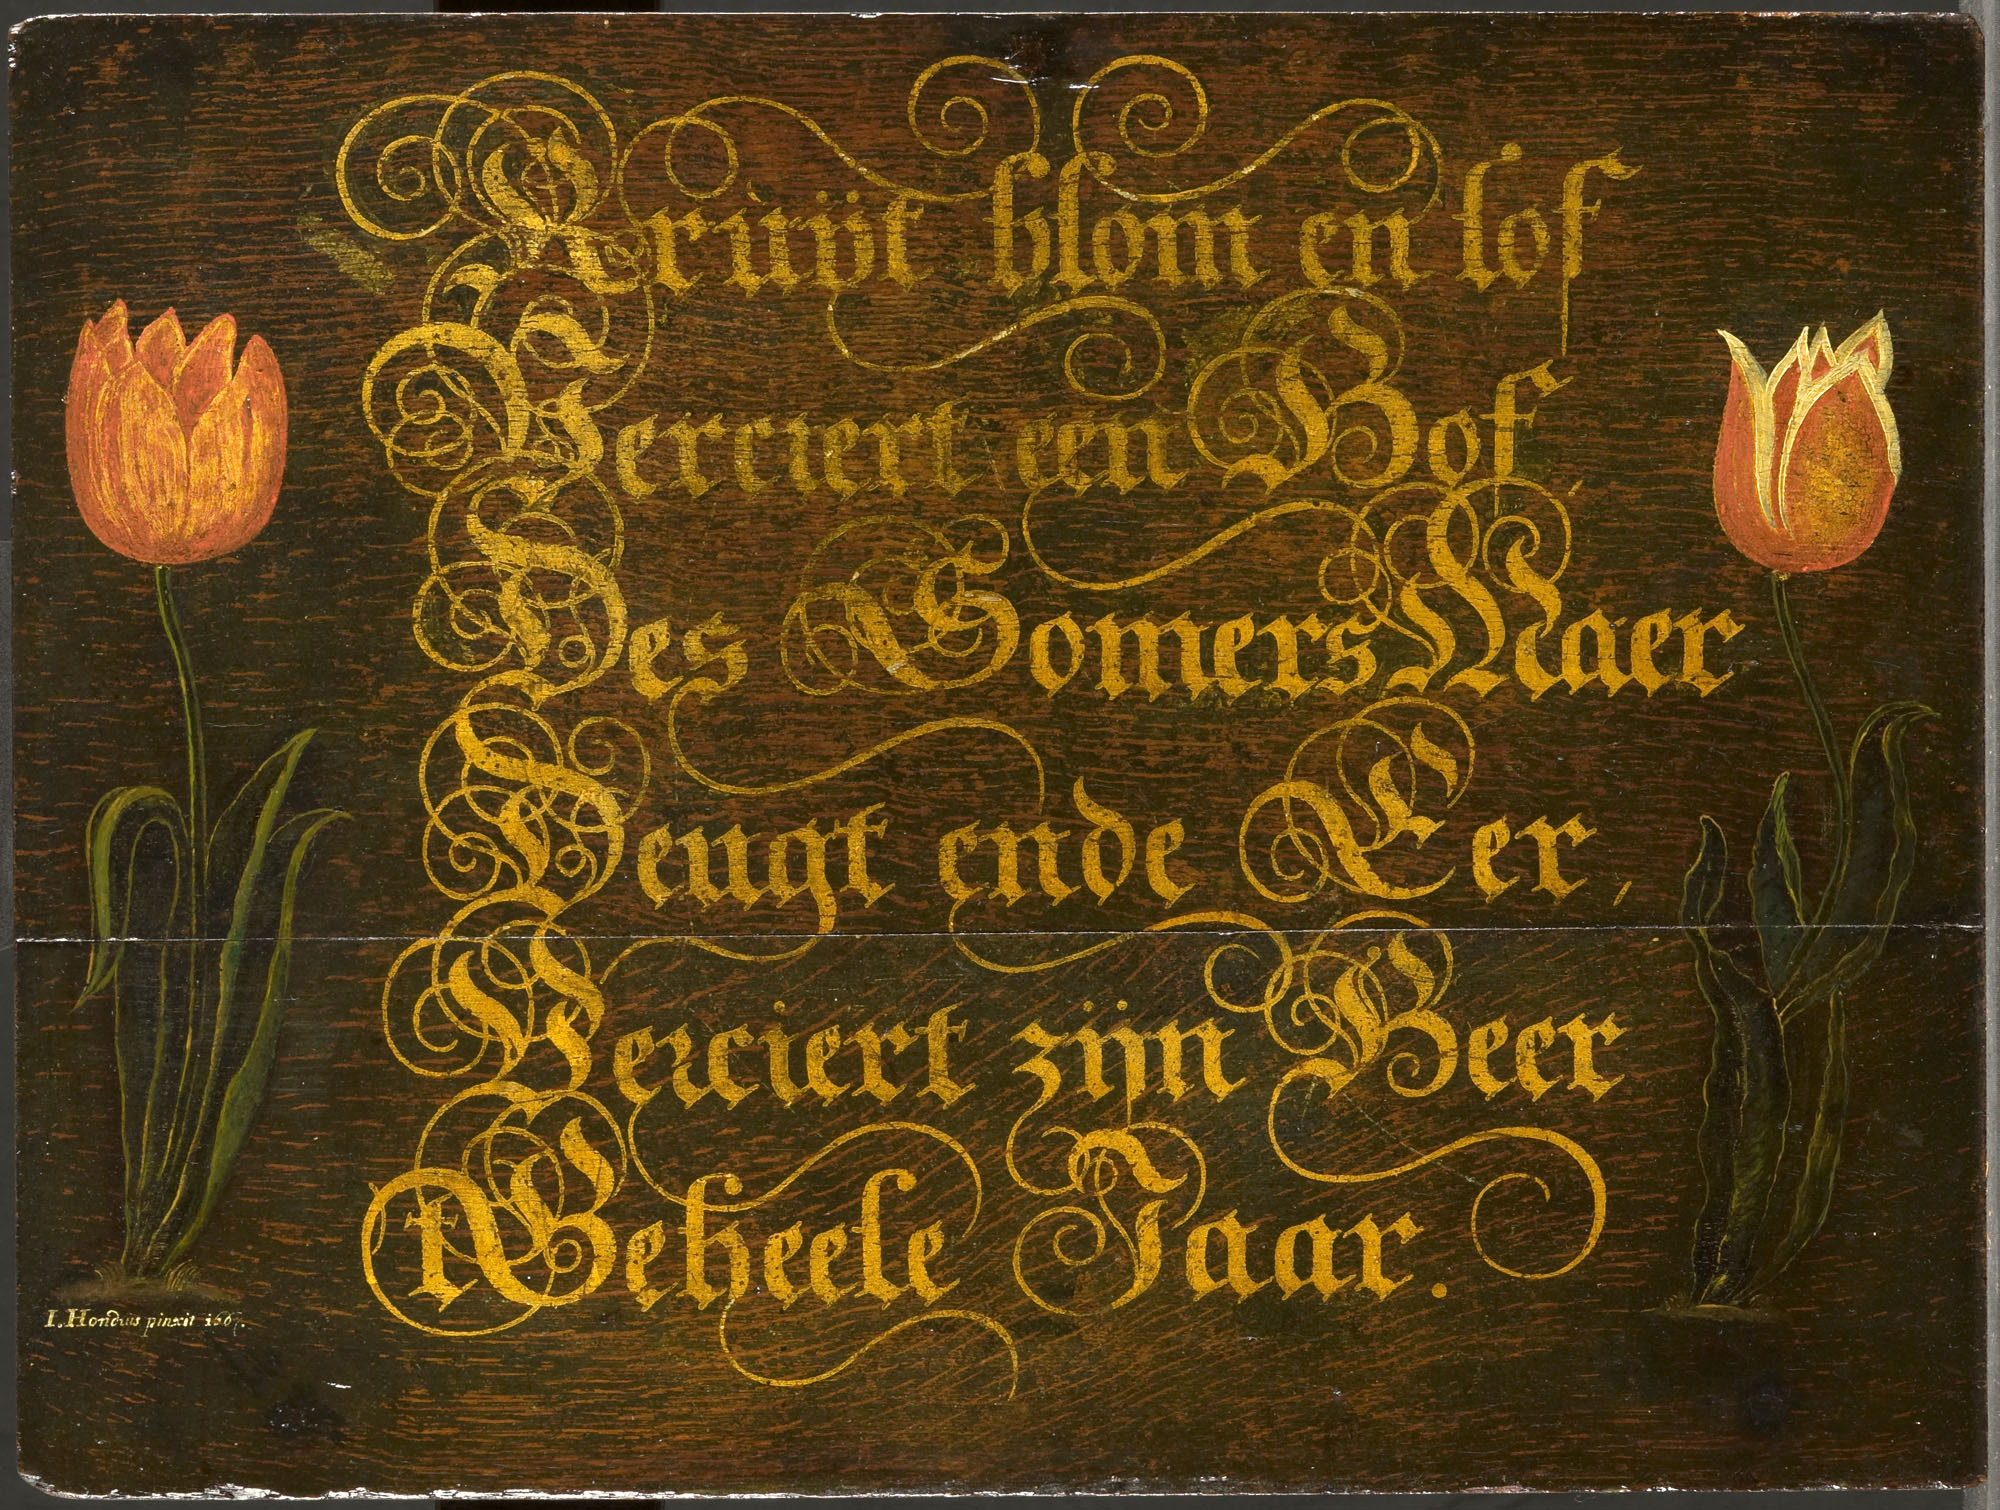 Krùÿt blom en lof
Verciert een Hof,
Des Somers Maer
Deugt ende Eer,
Verciert zijn Heer
t Geheele Jaar.
I. Hondius pinxit